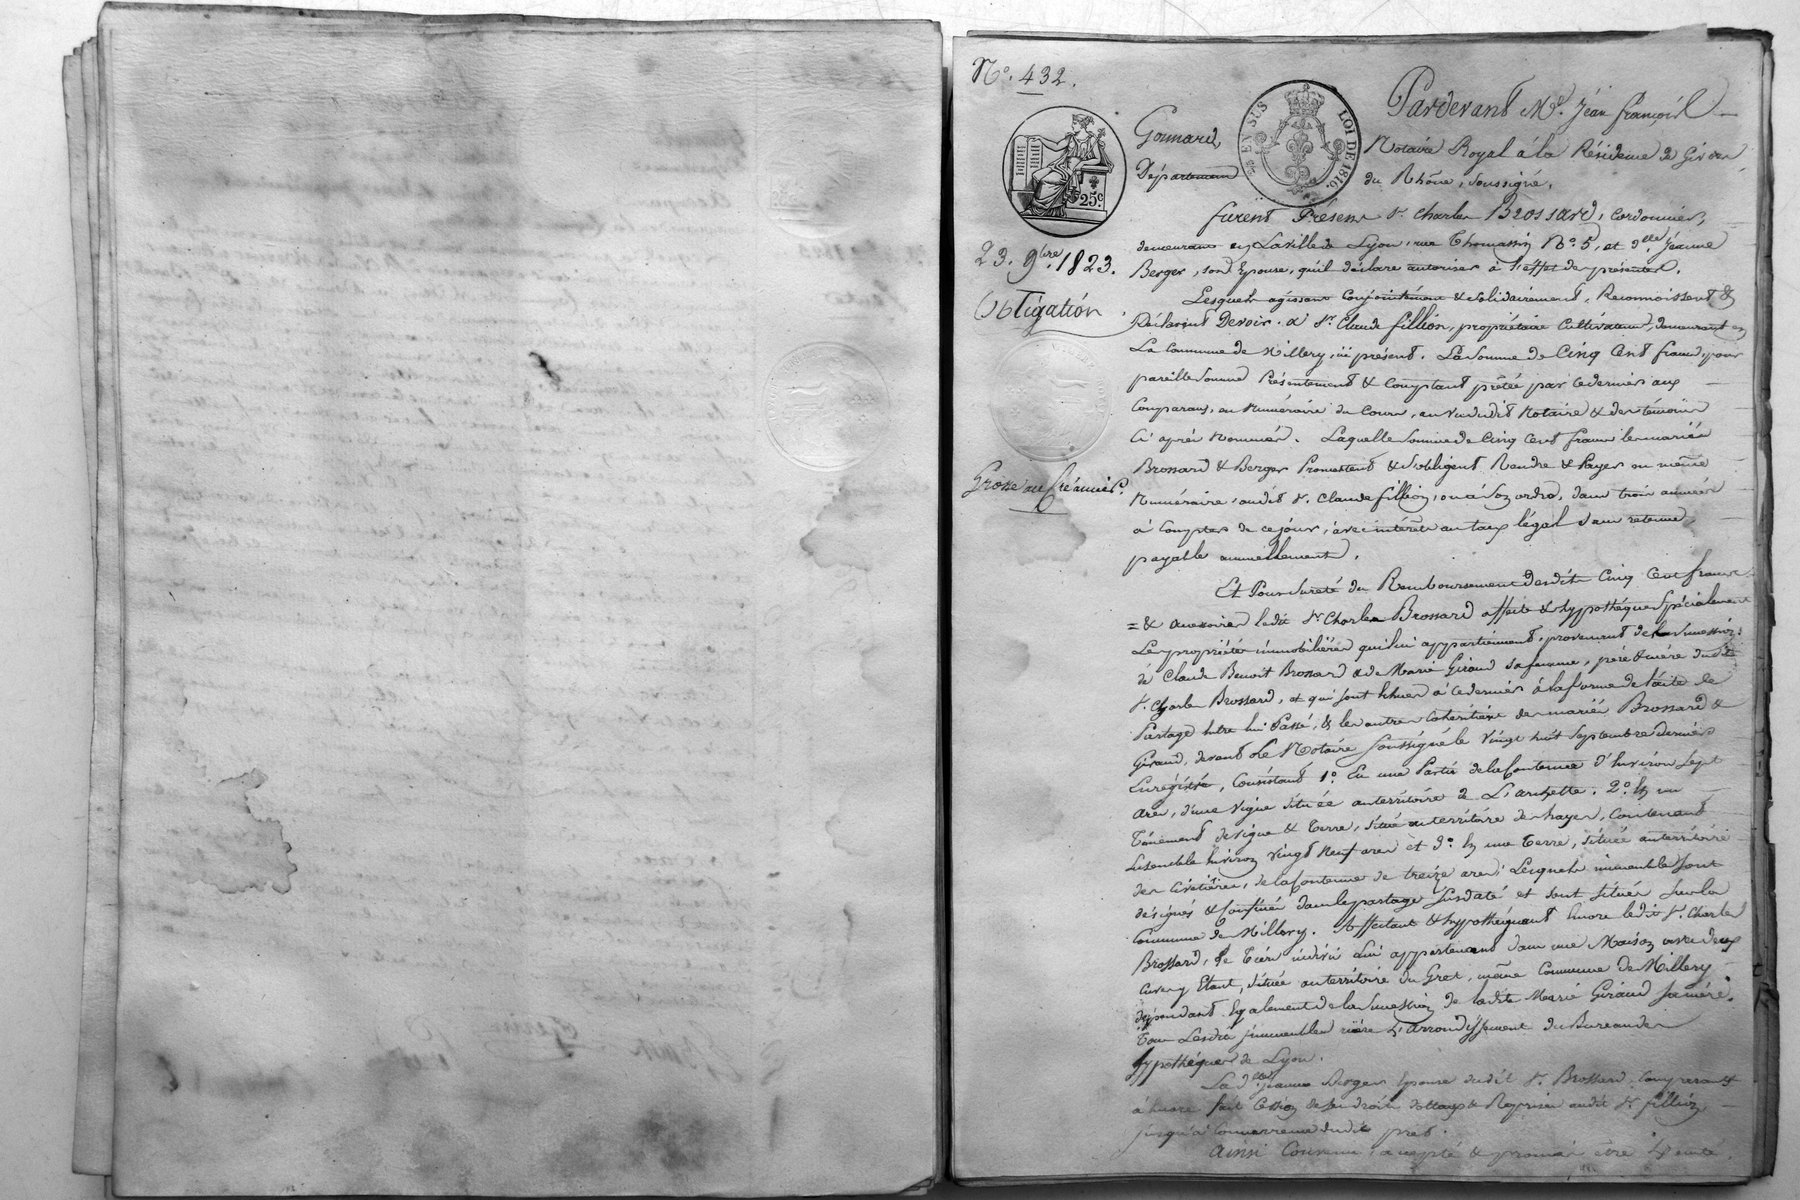 N.° 432.
Pardevant Me. Jean françois
Gonnard,
Notaire Royal à la Résidence de Givors
Département
du Rhône, soussigné,
EN SUS
LOI DE 1816.
25.c
furent Présens sr. Charles Brossard, Cordonnier,
demeurant en La ville de Lyon, rue Thomassin N.° 5, et dlle. Jeanne
Berger, son Epouse, qu'il déclare autoriser à l'effet des présentes.
23. 9bre. 1823.
Obligation
Lesquels agissant conjointement & solidairement, Reconnoissent &
Déclarent Devoir à sr. Claude fillion, propriétaire Cultivateur, demeurant en
La Commune de Millery, ici présent. La somme de Cinq Cent francs, pour
pareille somme Présentement & Comptant prêtée par ce dernier aux
Comparans, en Numéraire du Cours, au vu dudit Notaire & des témoins
Ci après Nommés. Laquelle somme de Cinq Cent francs les mariés
Brossard & Berger Promettent & s'obligent Rendre & Payer en même
Grosse au Créancier.
Numéraire, audit sr. Claude fillion, ou à son ordre, dans trois années
à Compter de ce jour, avec intérêts au taux légal sans retenue,
payable annuellement.
Et Pour sureté du Remboursement desdits Cinq Cent francs
= & accessoires ledit sr. Charles Brossard affecte & hypothéque Spécialement
Les propriétés immobilières qui lui appartiennent, provenant de la Succession
de Claude Benoit Brossard & de Marie Giraud sa femme, père & mère dudit
sr. Charles Brossard, et qui sont échues à ce dernier à la forme de l'acte de
Partage Entre lui Passé, & les autres Cohéritiers des mariés Brossard &
Giraud, devant Le Notaire soussigné le vingt huit Septembre dernier
Enregistré, Consistant 1.° En une Partie de la Contenue d'Environ Sept
Ares, d'une vigne située au territoire de L'archette. 2.° En un
Ténement de vigne & Terre, situé au territoire des hayes, Contenant
Ensemble Environ vingt Neuf ares et 3.° En une Terre, située au territoire
des Civetières, de la Contenue de treize ares; Lesquels immeubles sont
désignés & Confinés dans le partage Susdaté et sont situés Sur la
Commune de Millery. Affectant & hypothéquant Encore ledit sr. Charles
Brossard, Le Tiers indivis à lui appartenant dans une Maison avec deux
Cuves y Etant, située au territoire du Gret, même Commune de Millery
dépendant Egalement de la Succession de ladite Marie Giraud sa mère.
Tous Lesdits immeubles rière L'arrondissement du Bureau des
hypothéques de Lyon.
La dlle. Jeanne Berger Epouse dudit sr. Brossard, Comparante
à Encore fait Cession de ses droits dottaux & Reprises audit sr. fillion
jusqu'à Concurrence dudit prêt.
Ainsi Convenu, accepté & promis être Exécuté.